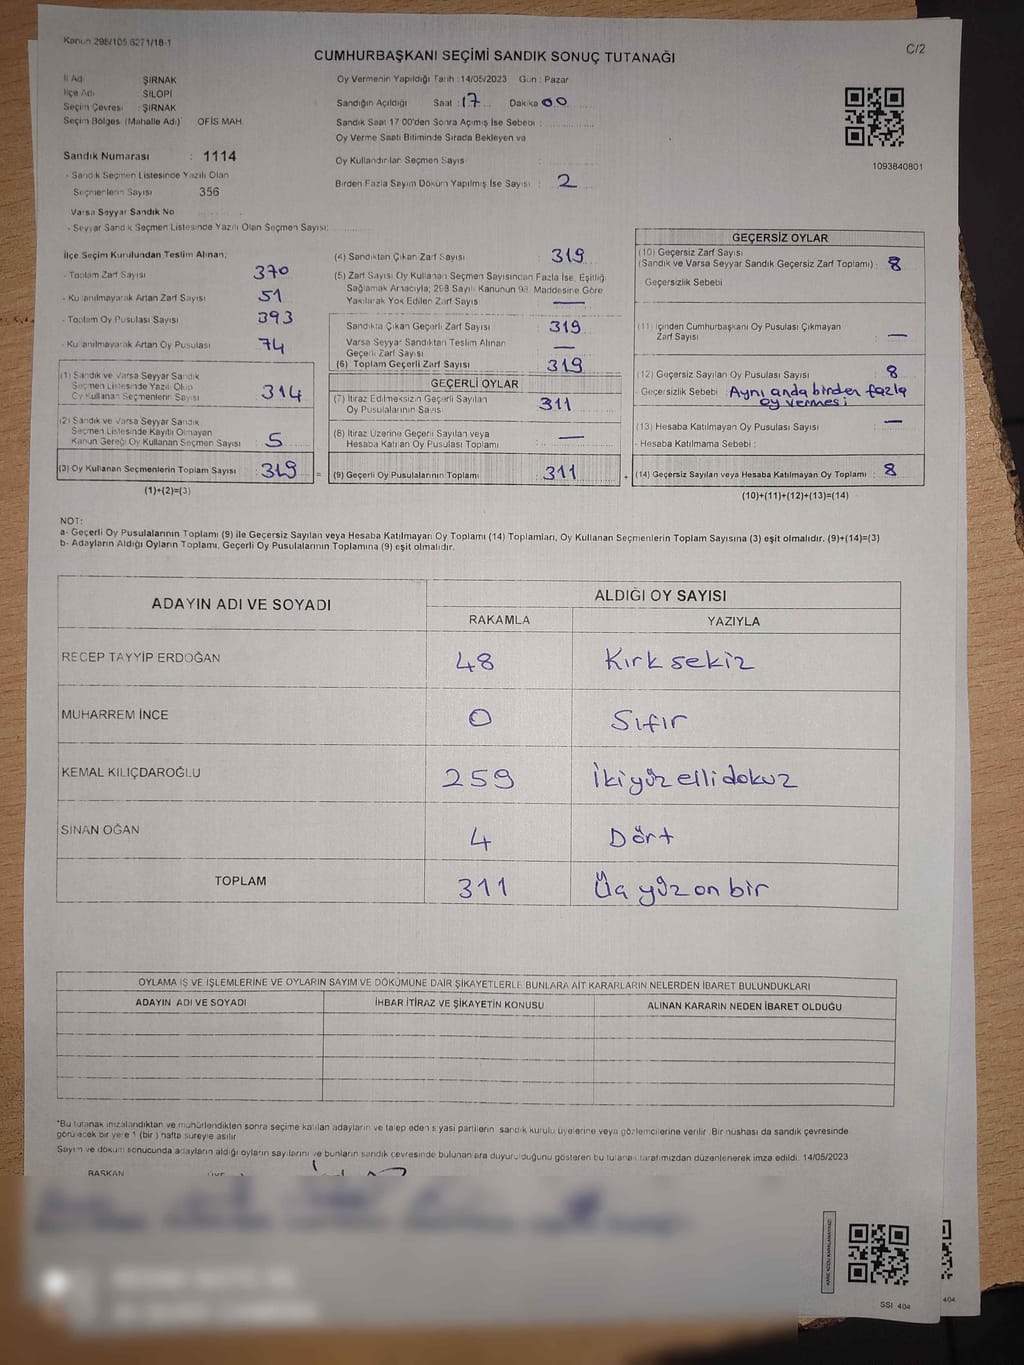 Kanun 298/105 6271/18-1
C/2
CUMHURBAŞKANI SEÇİMİ SANDIK SONUÇ TUTANAĞI
İl Adı : ŞIRNAK
İlçe Adı : SİLOPİ
Seçim Çevresi : ŞIRNAK
Seçim Bölgesi (Mahalle Adı) : OFİS MAH.
Sandık Numarası : 1114
- Sandık Seçmen Listesinde Yazılı Olan
Seçmenlerin Sayısı 356
Varsa Seyyar Sandık No
- Seyyar Sandık Seçmen Listesinde Yazılı Olan Seçmen Sayısı:
Oy Vermenin Yapıldığı Tarih : 14/05/2023 Gün : Pazar
Sandığın Açıldığı Saat : 17 Dakika 00
Sandık Saat 17:00'den Sonra Açılmış İse Sebebi :
Oy Verme Saati Bitiminde Sırada Bekleyen ve
Oy Kullandırılan Seçmen Sayısı :
Birden Fazla Sayım Döküm Yapılmış İse Sayısı : 2
1093840801
İlçe Seçim Kurulundan Teslim Alınan;
- Toplam Zarf Sayısı 370
- Kullanılmayarak Artan Zarf Sayısı 51
- Toplam Oy Pusulası Sayısı 393
- Kullanılmayarak Artan Oy Pusulası 74
(1) Sandık ve Varsa Seyyar Sandık
Seçmen Listesinde Yazılı Olup
Oy Kullanan Seçmenlerin Sayısı : 314
(2) Sandık ve Varsa Seyyar Sandık
Seçmen Listesinde Kayıtlı Olmayan
Kanun Gereği Oy Kullanan Seçmen Sayısı : 5
(3) Oy Kullanan Seçmenlerin Toplam Sayısı : 319 =
(1)+(2)=(3)
(4) Sandıktan Çıkan Zarf Sayısı : 319
(5) Zarf Sayısı Oy Kullanan Seçmen Sayısından Fazla İse, Eşitliği
Sağlamak Amacıyla; 298 Sayılı Kanunun 98. Maddesine Göre
Yakılarak Yok Edilen Zarf Sayısı : —
Sandıkta Çıkan Geçerli Zarf Sayısı : 319
Varsa Seyyar Sandıktan Teslim Alınan
Geçerli Zarf Sayısı : —
(6) Toplam Geçerli Zarf Sayısı : 319
GEÇERLİ OYLAR
(7) İtiraz Edilmeksizin Geçerli Sayılan
Oy Pusulalarının Sayısı : 311
(8) İtiraz Üzerine Geçerli Sayılan veya
Hesaba Katılan Oy Pusulası Toplamı : —
(9) Geçerli Oy Pusulalarının Toplamı : 311 +
GEÇERSİZ OYLAR
(10) Geçersiz Zarf Sayısı
(Sandık ve Varsa Seyyar Sandık Geçersiz Zarf Toplamı) : 8
Geçersizlik Sebebi
(11) İçinden Cumhurbaşkanı Oy Pusulası Çıkmayan
Zarf Sayısı : —
(12) Geçersiz Sayılan Oy Pusulası Sayısı : 8
Geçersizlik Sebebi : Aynı anda birden fazla
oy vermesi
(13) Hesaba Katılmayan Oy Pusulası Sayısı : —
- Hesaba Katılmama Sebebi :
(14) Geçersiz Sayılan veya Hesaba Katılmayan Oy Toplamı : 8
(10)+(11)+(12)+(13)=(14)
NOT:
a- Geçerli Oy Pusulalarının Toplamı (9) ile Geçersiz Sayılan veya Hesaba Katılmayan Oy Toplamı (14) Toplamları, Oy Kullanan Seçmenlerin Toplam Sayısına (3) eşit olmalıdır. (9)+(14)=(3)
b- Adayların Aldığı Oyların Toplamı, Geçerli Oy Pusulalarının Toplamına (9) eşit olmalıdır.
ADAYIN ADI VE SOYADI
ALDIĞI OY SAYISI
RAKAMLA YAZIYLA
RECEP TAYYİP ERDOĞAN 48 Kırk sekiz
MUHARREM İNCE 0 Sıfır
KEMAL KILIÇDAROĞLU 259 İkiyüz ellidokuz
SİNAN OĞAN 4 Dört
TOPLAM 311 Üç yüz on bir
OYLAMA İŞ VE İŞLEMLERİNE VE OYLARIN SAYIM VE DÖKÜMÜNE DAİR ŞİKAYETLERLE BUNLARA AİT KARARLARIN NELERDEN İBARET BULUNDUKLARI
ADAYIN ADI VE SOYADI İHBAR İTİRAZ VE ŞİKAYETİN KONUSU ALINAN KARARIN NEDEN İBARET OLDUĞU
*Bu tutanak imzalandıktan ve mühürlendikten sonra seçime katılan adayların ve talep eden siyasi partilerin sandık kurulu üyelerine veya gözlemcilerine verilir. Bir nüshası da sandık çevresinde
görülecek bir yere 1 (bir) hafta süreyle asılır
Sayım ve döküm sonucunda adayların aldığı oyların sayılarını ve bunların sandık çevresinde bulunanlara duyurulduğunu gösteren bu tutanak tarafımızdan düzenlenerek imza edildi. 14/05/2023
BAŞKAN
KARE KODU KARALAMAYINIZ!
SSI 404
404